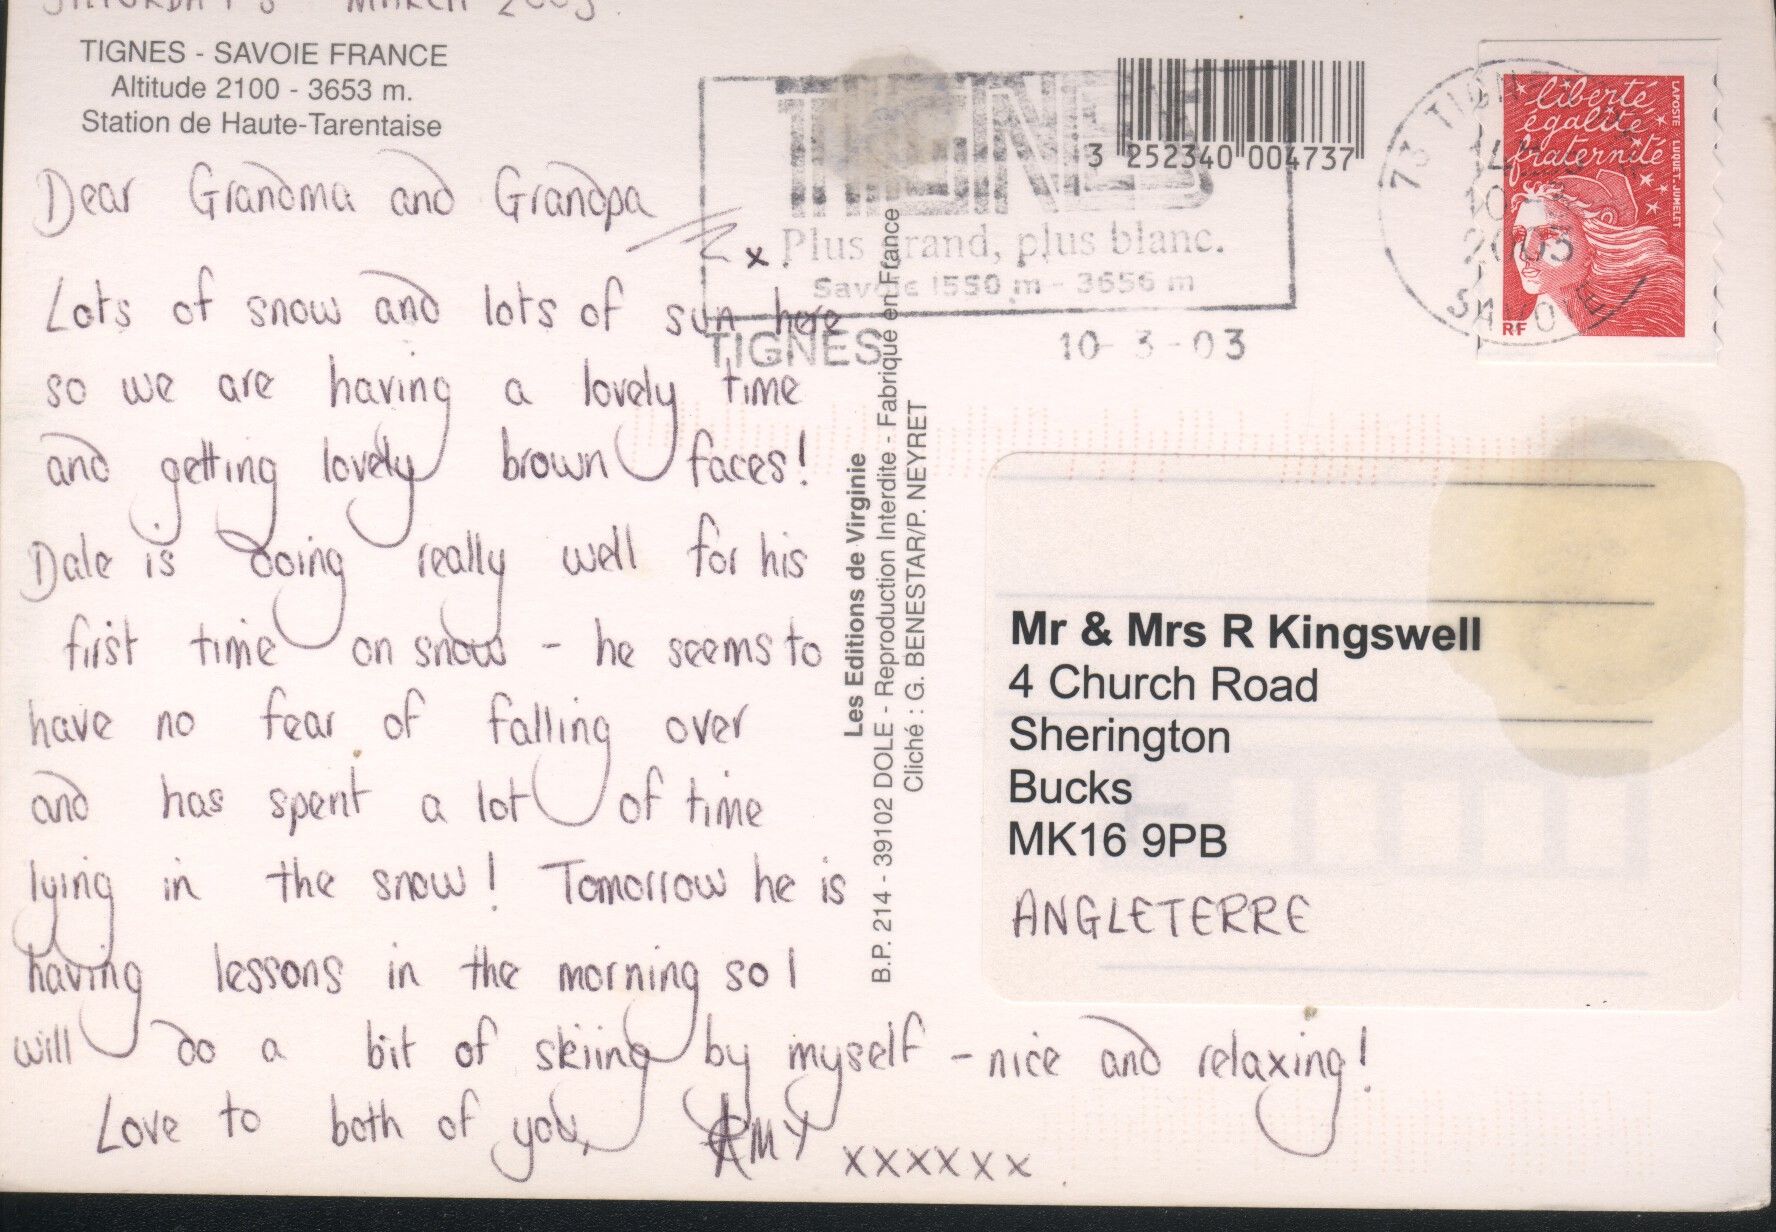 SATURDAY 8 MARCH 2003
TIGNES - SAVOIE FRANCE
Altitude 2100 - 3653 m.
Station de Haute-Tarentaise
Dear Grandma and Grandpa
x
Lots of snow and lots of sun here
so we are having a lovely time
and getting lovely brown faces!
Dale is doing really well for his
first time on snow - he seems to
have no fear of falling over
and has spent a lot of time
lying in the snow! Tomorrow he is
having lessons in the morning so I
will do a bit of skiing by myself - nice and relaxing!
Love to both of you,
AMY xxxxxx
TIGNES
Plus grand, plus blanc.
Savoie 1550 m - 3656 m
TIGNES 10-3-03
3 252340 004737
73 TIGNES
10-3
2003
SAVOIE
liberté
égalité
fraternité
LA POSTE LUQUET.JUMELET
RF
Les Editions de Virginie
B.P. 214 - 39102 DOLE - Reproduction Interdite - Fabriqué en France
Cliché : G. BENESTAR/P. NEYRET
Mr & Mrs R Kingswell
4 Church Road
Sherington
Bucks
MK16 9PB
ANGLETERRE